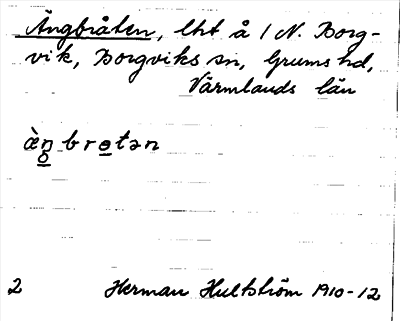 Ängbråten, lht å 1 N. Borg-
vik, Borgviks sn, Grums hd,
Värmlands län
brotən
2 Herman Hultström 1910-12